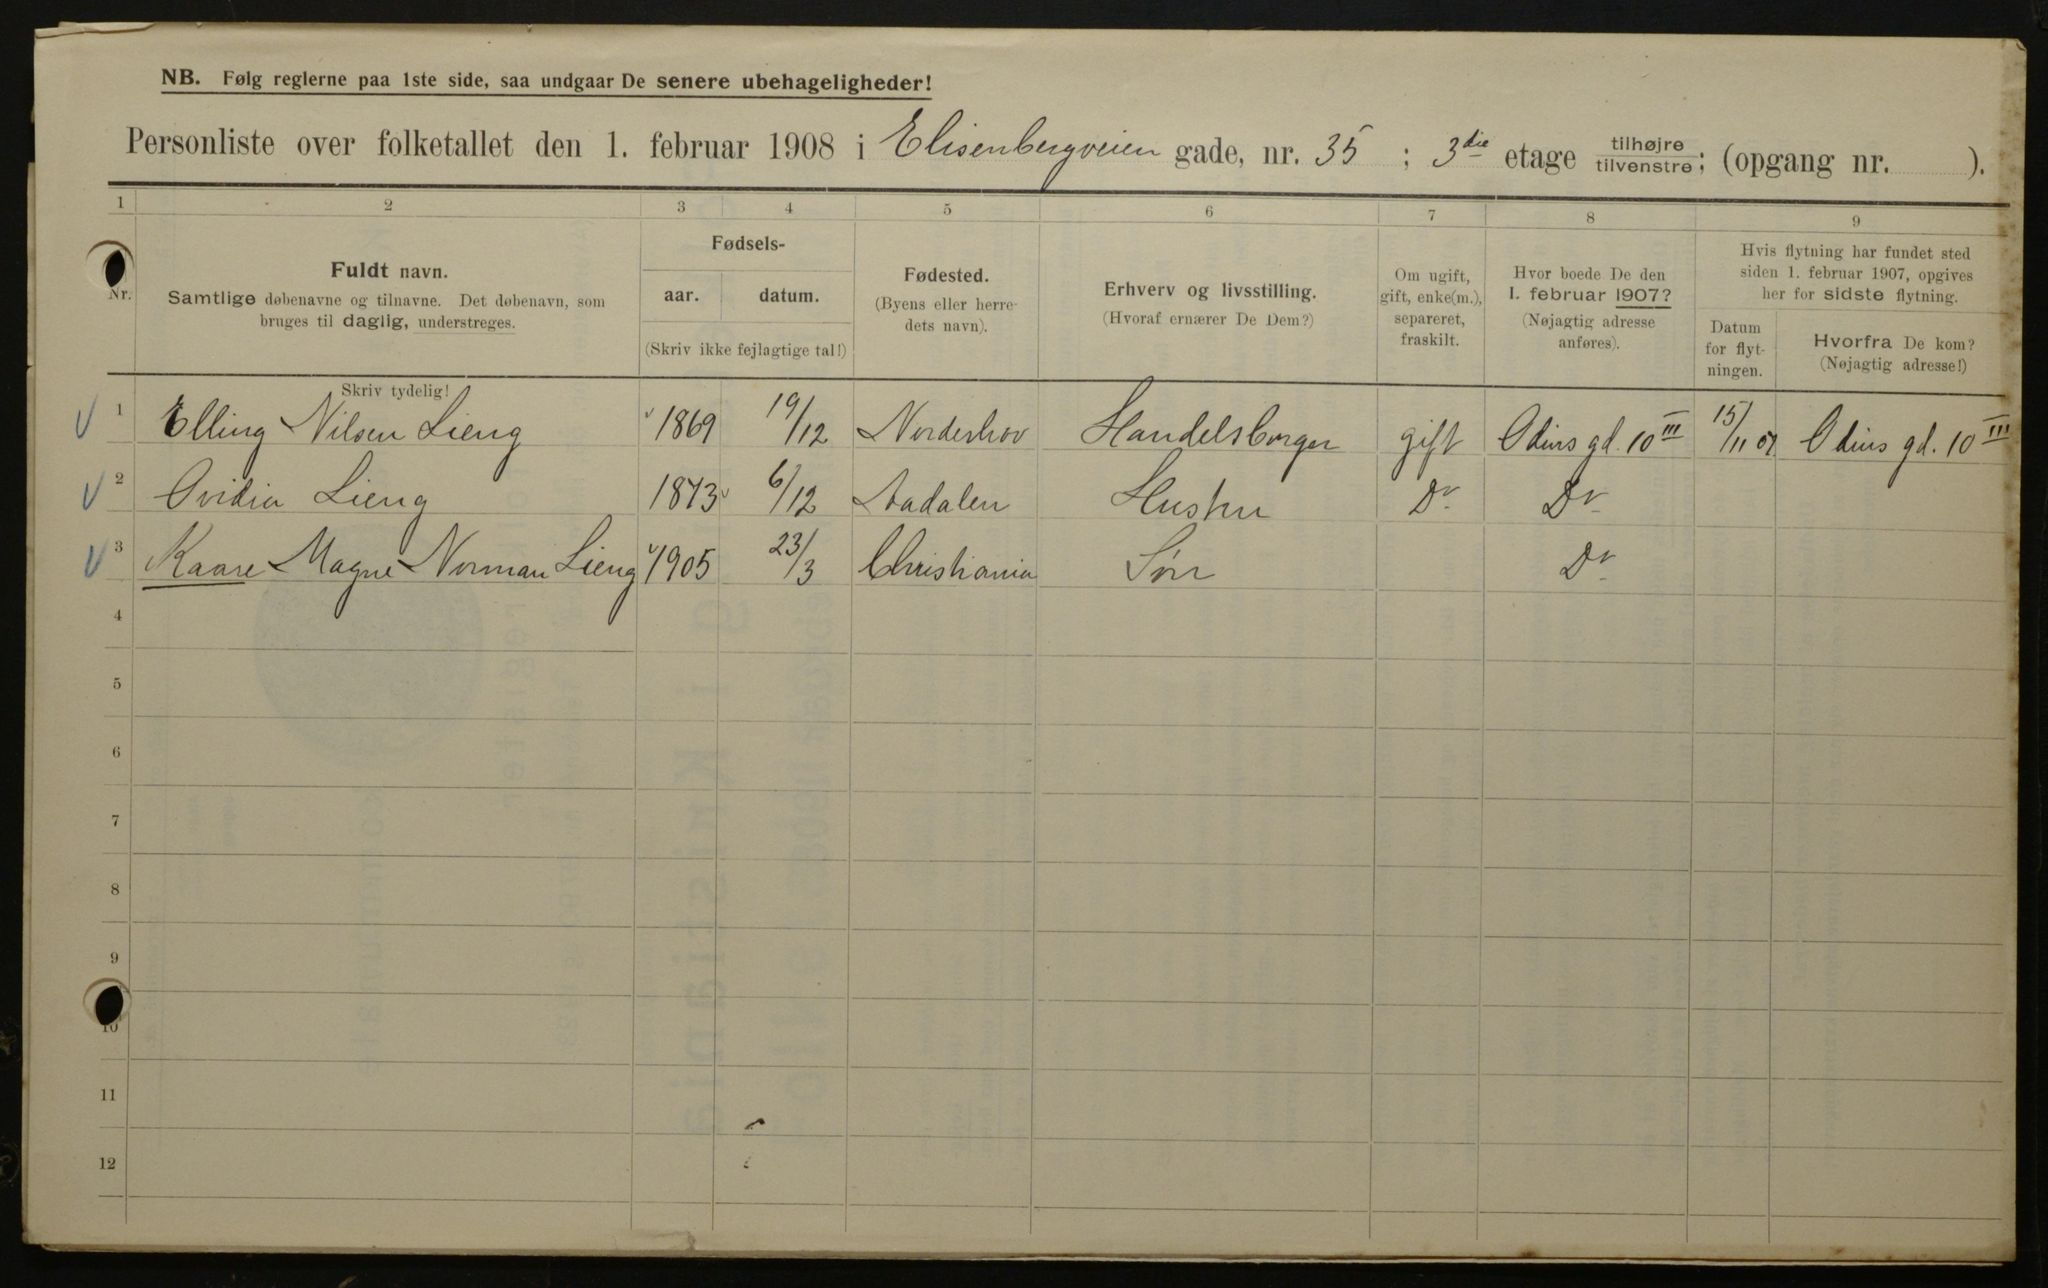 NB. Følg reglerne paa 1ste side, saa undgaar De senere ubehageligheder!
Personliste over folketallet den 1. februar 1908 i Elisenbergveien gade, nr. 35 ; 3die etage tilhøjre tilvenstre; (opgang nr. ).
1 2 3 4 5 6 7 8 9
Nr.
Fuldt navn.
Samtlige døbenavne og tilnavne. Det døbenavn, som
bruges til daglig, understreges.
Skriv tydelig!
Fødsels-
aar. datum.
(Skriv ikke fejlagtige tal!)
Fødested.
(Byens eller herre-
dets navn).
Erhverv og livsstilling.
(Hvoraf ernærer De Dem?)
Om ugift,
gift, enke(m.),
separeret,
fraskilt.
Hvor boede De den
1. februar 1907?
(Nøjagtig adresse
anføres).
Hvis flytning har fundet sted
siden 1. februar 1907, opgives
her for sidste flytning.
Datum
for flyt-
ningen.
Hvorfra De kom?
(Nøjagtig adresse!)
1 Elling Nilsen Lieng 1869 19/12 Norderhov Handelsborger gift Odins gd. 10 III 15/11 07 Odins gd. 10 III
2 Ovidia Lieng 1873 6/12 Aadalen Hustru Do Do
3 Kaare Magne Norman Lieng 1905 23/3 Christiania Søn Do
4
5
6
7
8
9
10
11
12